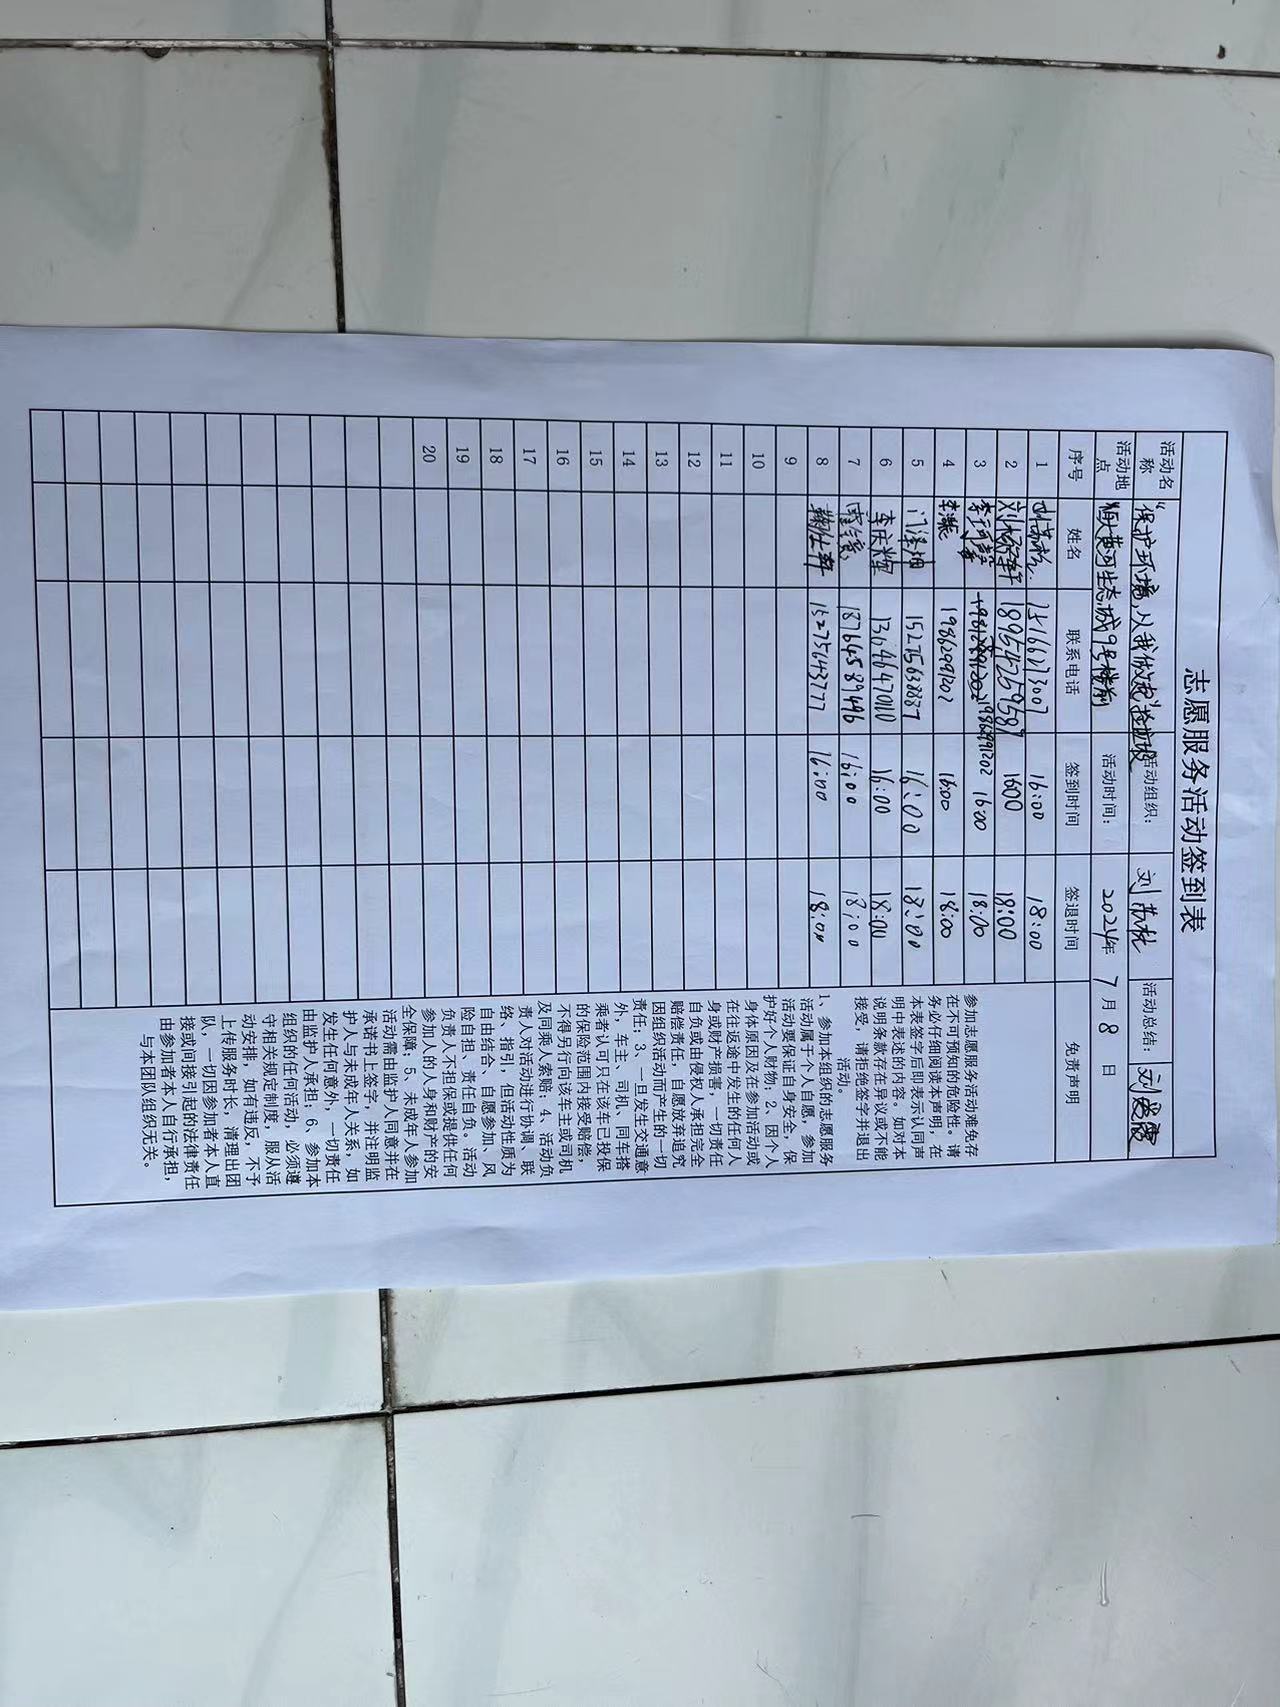 志愿服务活动签到表
活动名称 "保护环境,从我做起"捡垃圾 活动组织: 刘苏杭 活动总结:
活动地点 恒大黄河生态城9号楼前 活动时间: 2024年 7月 8日
序号 姓名 联系电话 签到时间 签退时间 免责声明
1 16:00 18:00
2 18954259589 1600 18:00
3 19862991202 16:00 18:00
4 李灏 19862991202 16:00 18:00
5 15275638837 16:00 18:00
6 李庆辉 13646470110 16:00 18:00
7 18764589496 16:00 18:00
8 15275643777 16:00 18:00
9
10
11
12
13
14
15
16
17
18
19
20
参加志愿服务活动难免存
在不可预知的危险性。请
务必仔细阅读本声明,在
本表签字后即表示认同声
明中表述的内容。如对本
说明条款存在异议或不能
接受,请拒绝签字并退出
活动。
1、参加本组织的志愿服务
活动属于个人自愿,参加
活动要保证自身安全,保
护好个人财物;2、因个人
身体原因及在参加活动或
在往返途中发生的任何人
身或财产损害,一切责任
自负或由侵权人承担完全
赔偿责任,自愿放弃追究
因组织活动而产生的一切
责任;3、一旦发生交通意
外,车主、司机、同车搭
乘者认可只在该车已投保
的保险范围内接受赔偿,
不得另行向该车主或司机
及同乘人索赔;4、活动负
责人对活动进行协调、联
络、指引,但活动性质为
自由结合、自愿参加、风
险自担、责任自负。活动
负责人不担保或提供任何
参加人的人身和财产的安
全保障;5、未成年人参加
活动需由监护人同意并在
承诺书上签字,并注明监
护人与未成年人关系,如
发生任何意外,一切责任
由监护人承担;6、参加本
组织的任何活动,必须遵
守相关规定制度,服从活
动安排,如有违反,不予
上传服务时长,清理出团
队,一切因参加者本人直
接或间接引起的法律责任
由参加者本人自行承担,
与本团队组织无关。